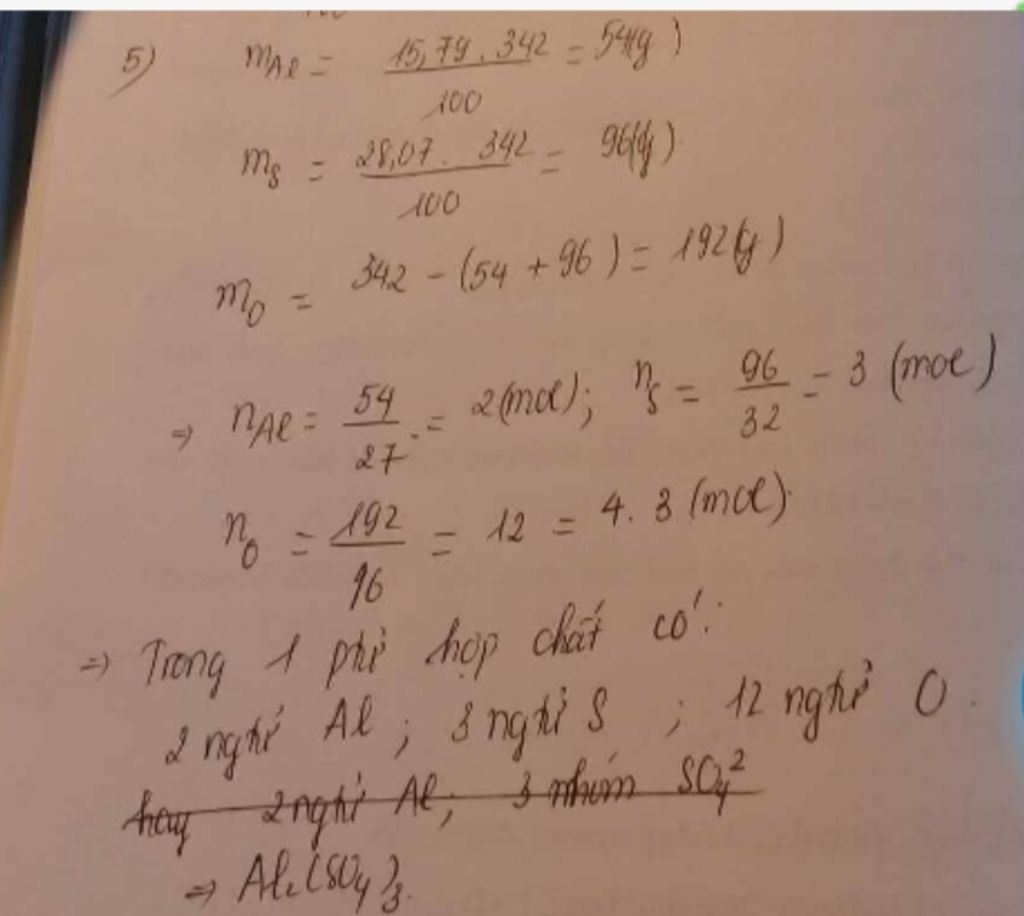 5) mAl = 15,79 . 342 / 100 = 54(g)
mS = 28,07 . 342 / 100 = 96(g)
mO = 342 - (54 + 96) = 192(g)
⇒ nAl = 54 / 27 = 2(mol); nS = 96 / 32 = 3 (mol)
nO = 192 / 96 = 12 = 4. 3 (mol).
⇒ Trong 1 phtử hợp chất có:
2 nghtử Al ; 3 nghtử S ; 12 nghtử O.
hay 2 nghtử Al; 3 nhóm SO4²
⇒ Al2(SO4)3.